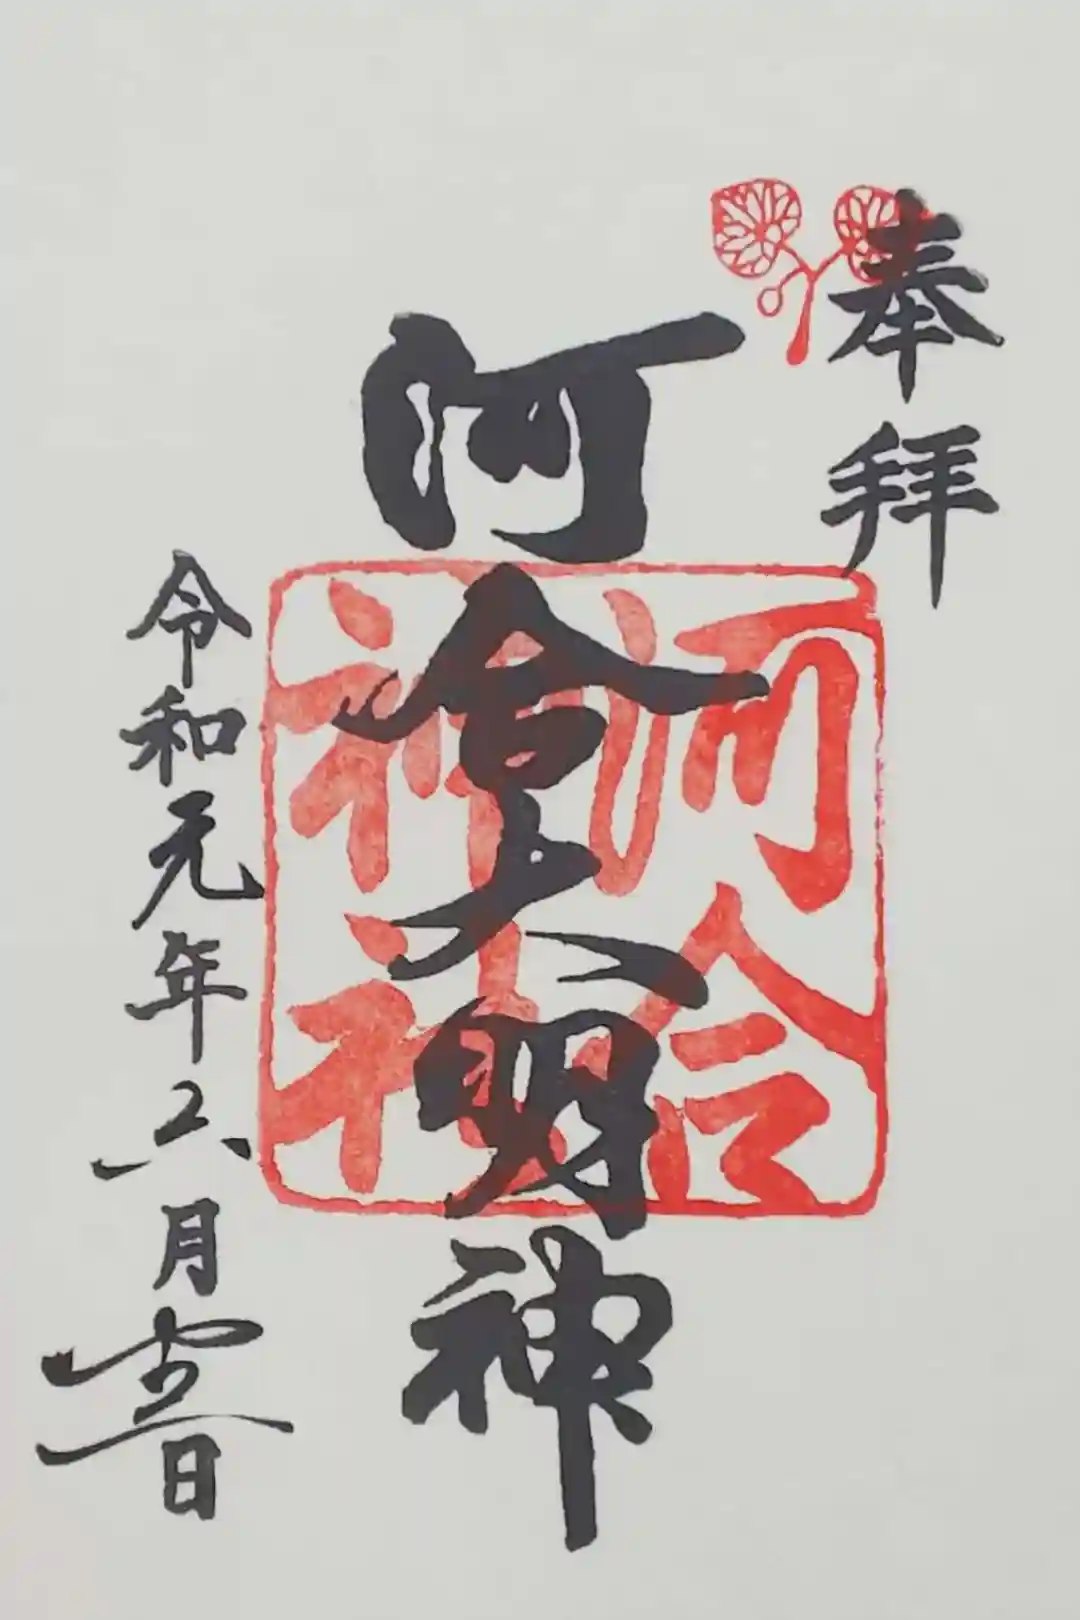 奉拝
河合大明神
河合
神社
令和元年六月 日